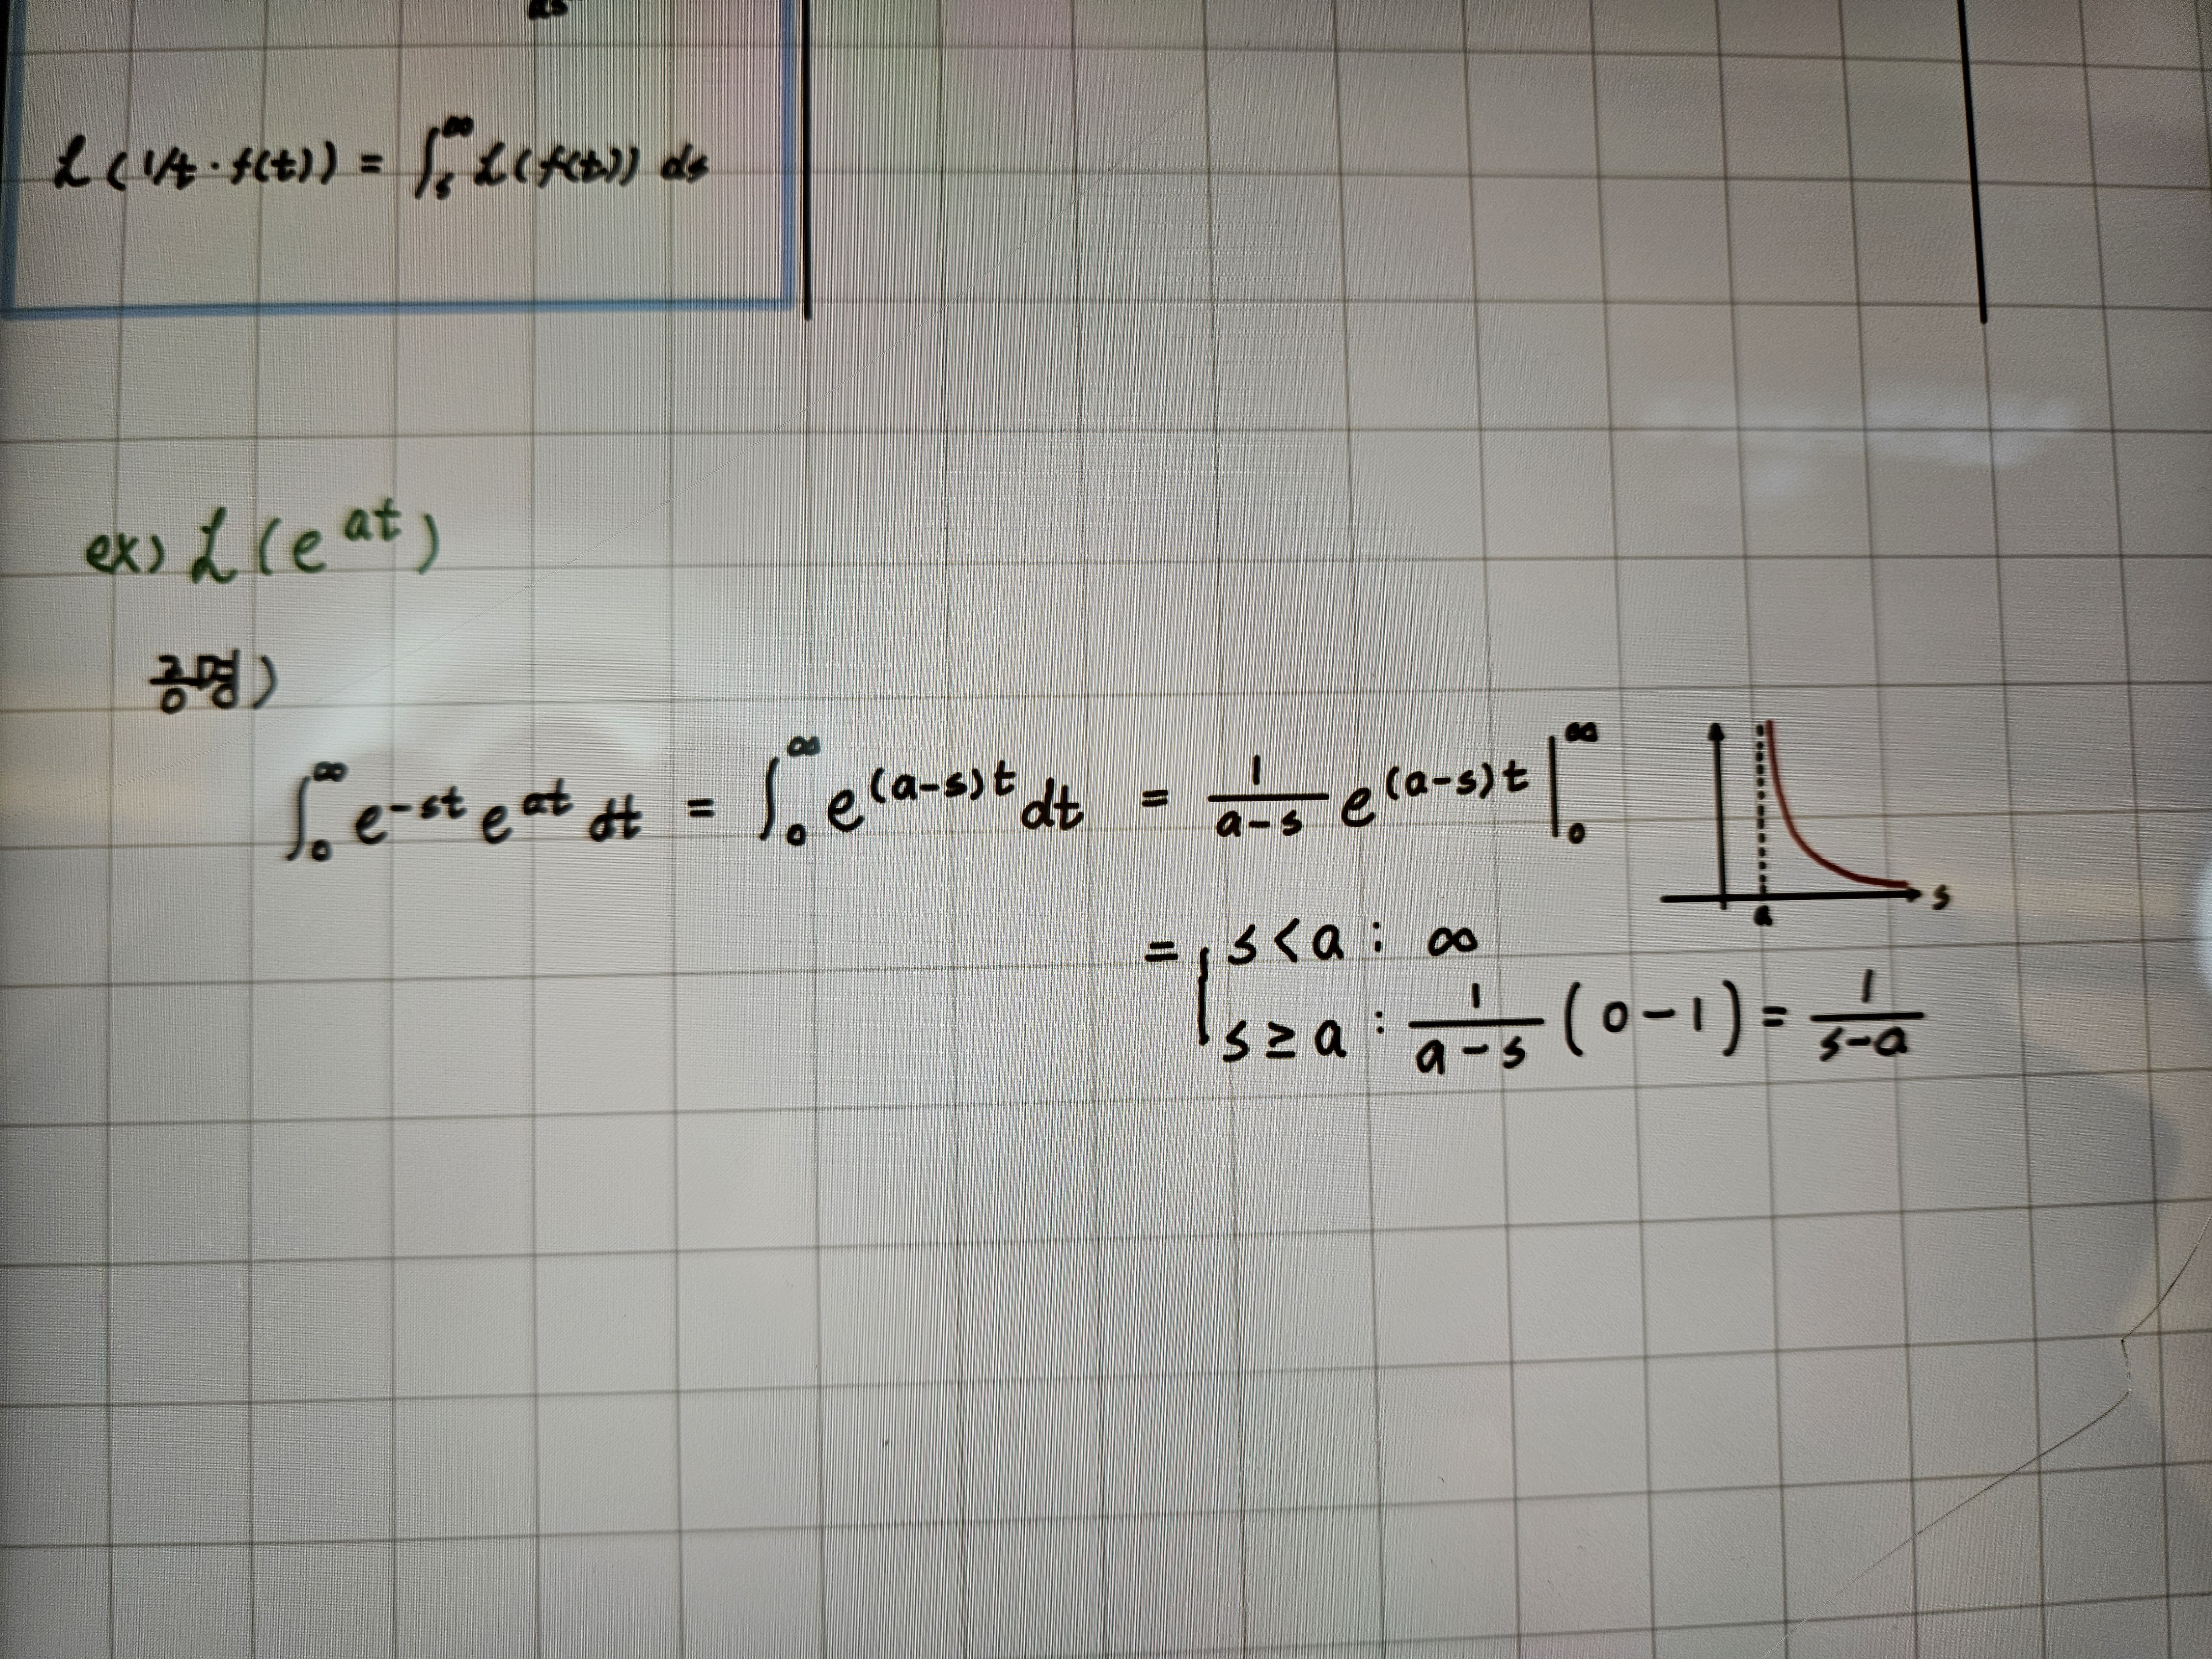 ds
ℒ(1/t · f(t)) = ∫ₛ^∞ ℒ(f(t)) ds
ex) ℒ(e^{at})
증명)
∫₀^∞ e^{-st} e^{at} dt = ∫₀^∞ e^{(a-s)t} dt = \frac{1}{a-s} e^{(a-s)t} |₀^∞
s
a
= { s < a : ∞
s ≥ a : \frac{1}{a-s} (0-1) = \frac{1}{s-a}